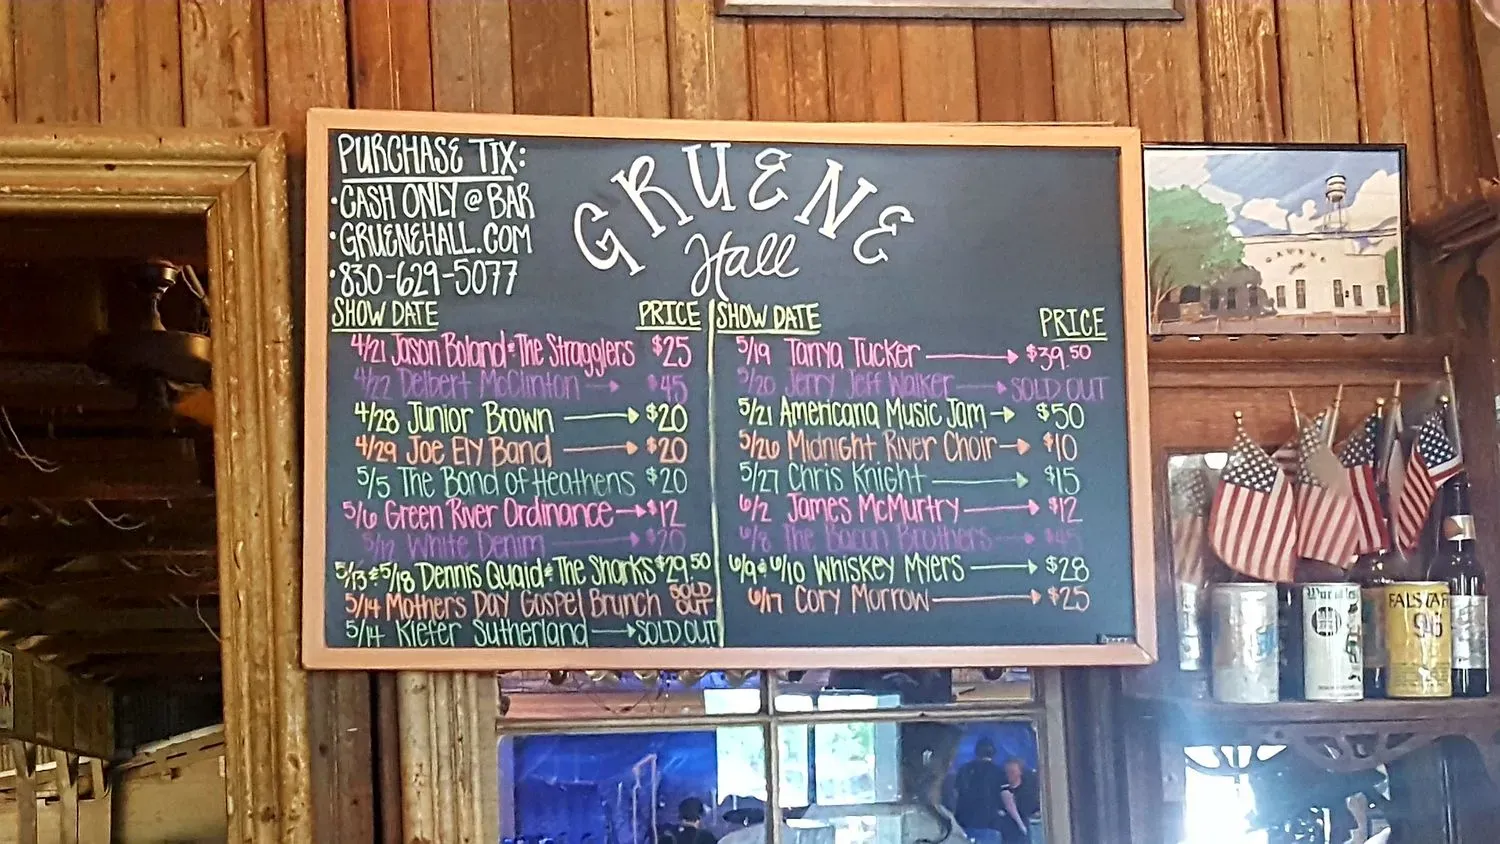 PURCHASE TIX:
• CASH ONLY @ BAR
• GRUENEHALL.COM
• 830-629-5077
GRUENE
Hall
SHOW DATE PRICE
4/21 Jason Boland & The Stragglers $25
4/22 Delbert McClinton → $45
4/28 Junior Brown → $20
4/29 Joe Ely Band → $20
5/5 The Band of Heathens $20
5/6 Green River Ordinance → $12
5/12 White Denim → $20
5/13 & 5/18 Dennis Quaid & The Sharks $29.50
5/14 Mother's Day Gospel Brunch SOLD OUT
5/14 Kiefer Sutherland → SOLD OUT
SHOW DATE PRICE
5/19 Tanya Tucker → $39.50
5/20 Jerry Jeff Walker → SOLD OUT
5/21 Americana Music Jam → $50
5/26 Midnight River Choir → $10
5/27 Chris Knight → $15
6/2 James McMurtry → $12
6/8 The Bacon Brothers → $45
6/9 & 6/10 Whiskey Myers → $28
6/17 Cory Morrow → $25
GRUENE
FALSTAFF
96